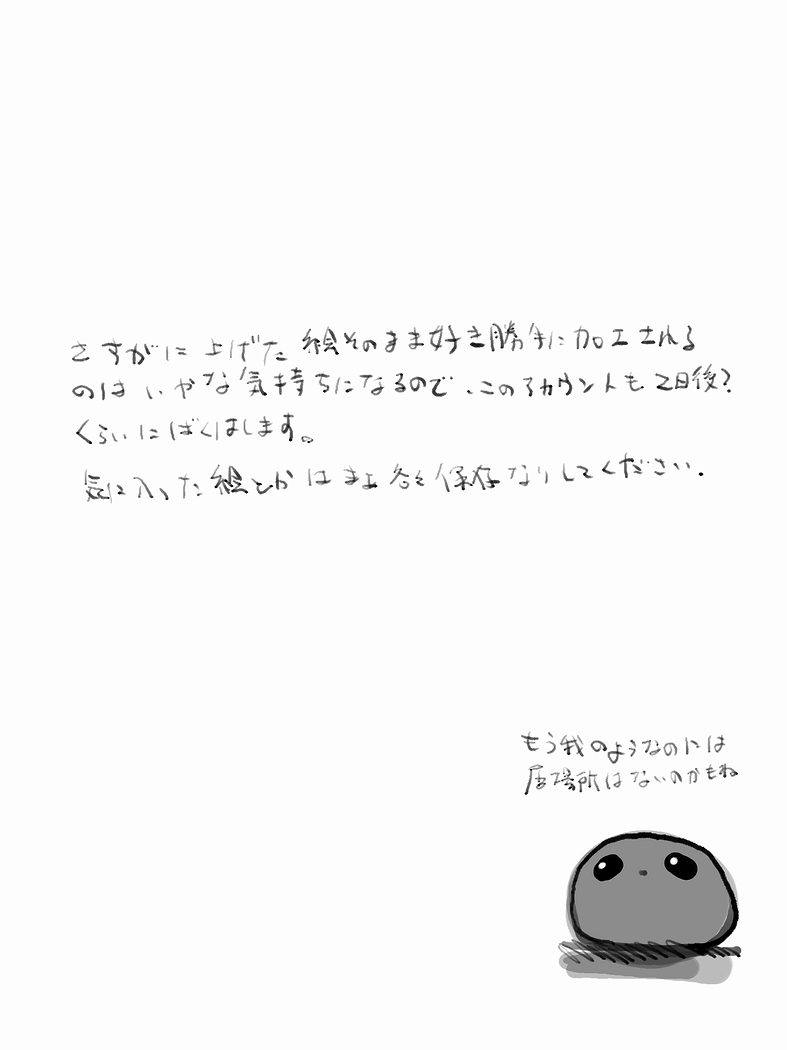 さすがに上げた絵そのまま好き勝手に加工される
のはいやな気持ちになるので、このアカウントも2日後?
くらいにばくはします。
気に入った絵とかはまあ各々保存なりしてください.
もう我のようなのには
居場所はないのかもね